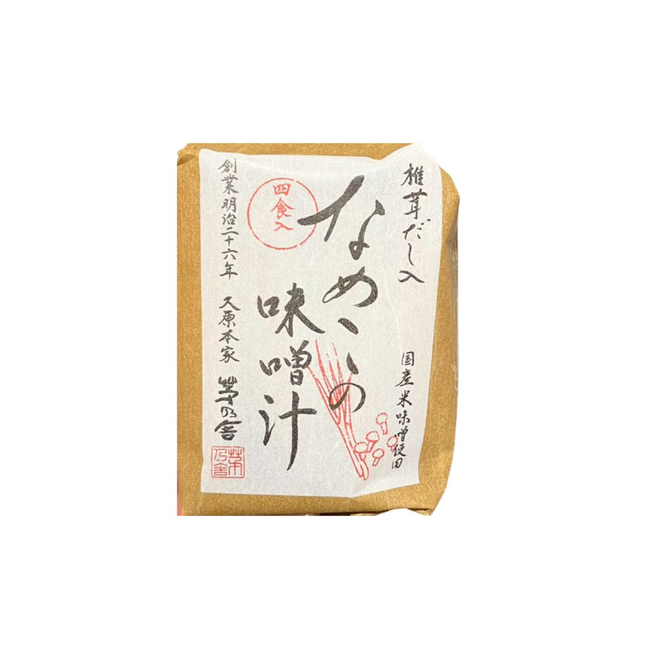 椎茸だし入
なめこの
味噌汁
四食入
国産米味噌使用
創業明治二十六年
久原本家
茅乃舎
茅乃舎